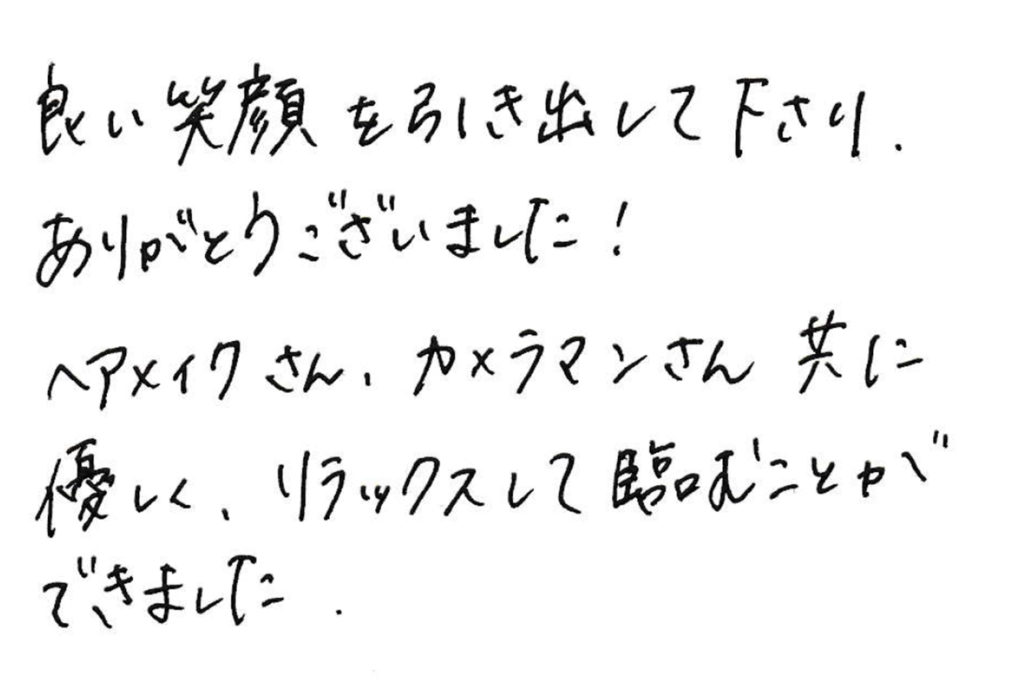 良い笑顔を引き出して下さり、
ありがとうございました！
ヘアメイクさん、カメラマンさん共に
優しく、リラックスして臨むことが
できました。